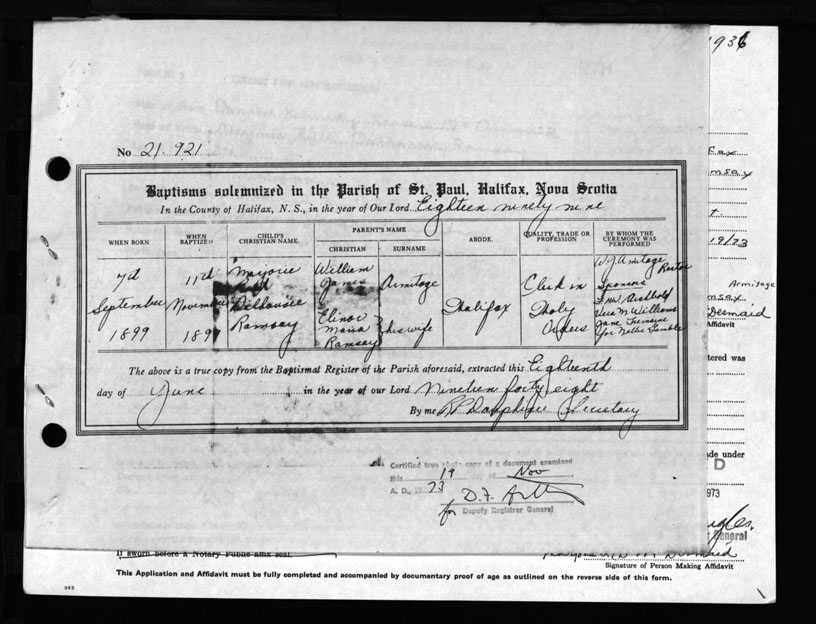 1936
No 21.921
Baptisms solemnized in the Parish of St. Paul, Halifax, Nova Scotia
In the County of Halifax, N. S., in the year of Our Lord Eighteen ninety nine
WHEN BORN
WHEN BAPTIZED
CHILD'S CHRISTIAN NAME.
PARENT'S NAME
CHRISTIAN
SURNAME
ABODE.
QUALITY, TRADE OR PROFESSION
BY WHOM THE CEREMONY WAS PERFORMED
7th
September
1899
11th
November
1899
Marjorie
Ruth
Dalhousie
Ramsay
William
James
Elinor
Maria
Ramsay
Armitage
his wife
Halifax
Clerk in
Holy
Orders
W J Armitage
Rector
Sponsors
Vera M Williams
Jane Fernair
for Nellie Gamble
The above is a true copy from the Baptismal Register of the Parish aforesaid, extracted this Eighteenth
day of June in the year of our Lord Nineteen forty eight
By me Secretary
Certified true photo copy of a document examined
this 19 day of Nov
A. D., 1973
D.F.
for Deputy Registrar General
fax
msay
t
19/73
Armitage
msay
Desmaid
Affidavit
tered was
de under
D
973
General
If sworn before a Notary Public affix seal.
M Desmaid
Signature of Person Making Affidavit
This Application and Affidavit must be fully completed and accompanied by documentary proof of age as outlined on the reverse side of this form.